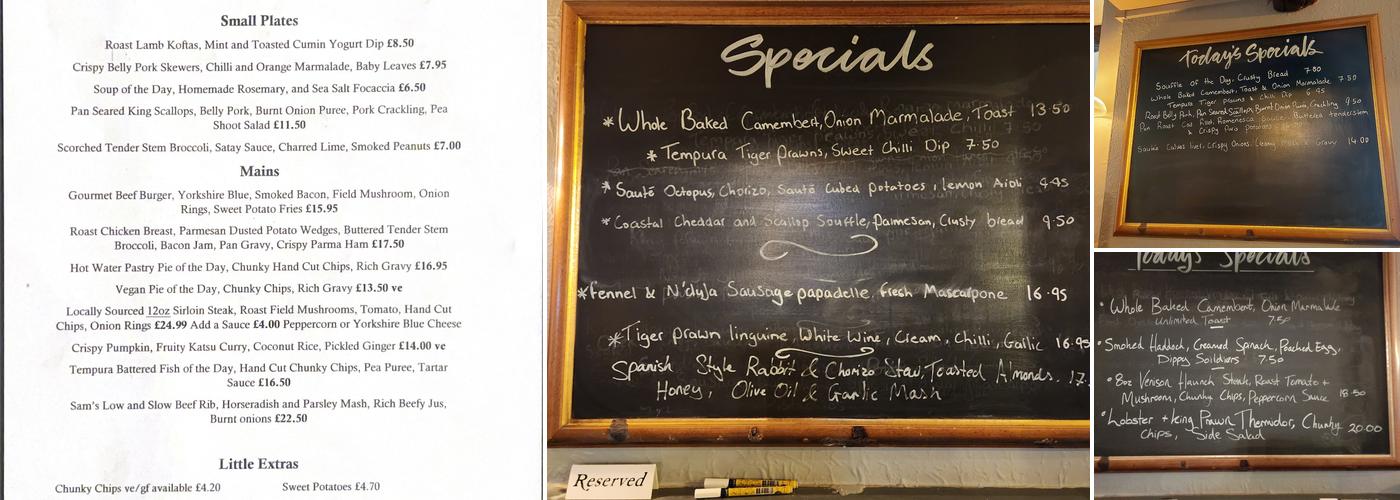 Small Plates
Roast Lamb Koftas, Mint and Toasted Cumin Yogurt Dip £8.50
Crispy Belly Pork Skewers, Chilli and Orange Marmalade, Baby Leaves £7.95
Soup of the Day, Homemade Rosemary, and Sea Salt Focaccia £6.50
Pan Seared King Scallops, Belly Pork, Burnt Onion Puree, Pork Crackling, Pea
Shoot Salad £11.50
Scorched Tender Stem Broccoli, Satay Sauce, Charred Lime, Smoked Peanuts £7.00
Mains
Gourmet Beef Burger, Yorkshire Blue, Smoked Bacon, Field Mushroom, Onion
Rings, Sweet Potato Fries £15.95
Roast Chicken Breast, Parmesan Dusted Potato Wedges, Buttered Tender Stem
Broccoli, Bacon Jam, Pan Gravy, Crispy Parma Ham £17.50
Hot Water Pastry Pie of the Day, Chunky Hand Cut Chips, Rich Gravy £16.95
Vegan Pie of the Day, Chunky Chips, Rich Gravy £13.50 ve
Locally Sourced 12oz Sirloin Steak, Roast Field Mushrooms, Tomato, Hand Cut
Chips, Onion Rings £24.99 Add a Sauce £4.00 Peppercorn or Yorkshire Blue Cheese
Crispy Pumpkin, Fruity Katsu Curry, Coconut Rice, Pickled Ginger £14.00 ve
Tempura Battered Fish of the Day, Hand Cut Chunky Chips, Pea Puree, Tartar
Sauce £16.50
Sam's Low and Slow Beef Rib, Horseradish and Parsley Mash, Rich Beefy Jus,
Burnt onions £22.50
Little Extras
Chunky Chips ve/gf available £4.20 Sweet Potatoes £4.70
Specials
* Whole Baked Camembert, Onion Marmalade, Toast 13.50
* Tempura Tiger Prawns, Sweet Chilli Dip 7.50
* Sauté Octopus, Chorizo, Sauté Cubed potatoes, lemon Aioli 9.95
* Coastal Cheddar and Scallop Souffle, Parmesan, Crusty bread 9.50
* Fennel & N'duja Sausage papadelle, fresh Mascarpone 16.95
* Tiger prawn linguine, White Wine, Cream, Chilli, Garlic 16.95
Spanish Style Rabbit & Chorizo Stew, Toasted Almonds. 17.
Honey, Olive Oil & Garlic Mash
Reserved
Today's Specials
Souffle of the Day, Crusty Bread 7.50
Whole Baked Camembert, Toast & Onion Marmalade 7.50
Tempura Tiger prawns & Chilli Dip 6.95
Roast Belly Pork, Pan Seared Scallops, Burnt Onion Puree, Crackling 9.50
Pan Roast Cod Buttered tenderstem
& Crispy potatoes
Calves liver, Crispy Onions, Creamy Mash & Gravy 14.00
Today's Specials
• Whole Baked Camembert, Onion Marmalade
Unlimited Toast 7.50
• Smoked Haddock, Creamed Spinach, Poached Egg,
Dippy Soildiers 7.50
• 8oz Venison Haunch Steak, Roast Tomato +
Mushroom, Chunky Chips, Peppercorn Sauce 18.50
• Lobster + King Prawn Thermidor, Chunky
Chips, Side Salad 20.00